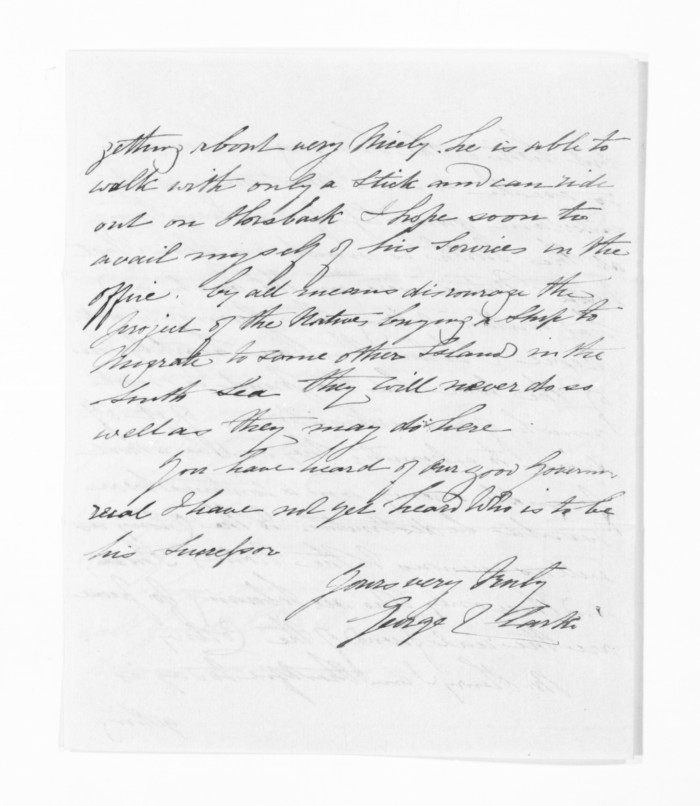 getting about very Nicely. he is able to
walk with only a Stick and can ride
out on Horsback I hope soon to
avail myself of his Services in the
office. by all means discourage the
project of the Natives buying a Ship to
Migrate to some other Island in the
South Sea they will never do so
well as they may do here
You have heard of our good Governors
I have not yet heard Who is to be
his Successor
Yours very truly
George Clarke